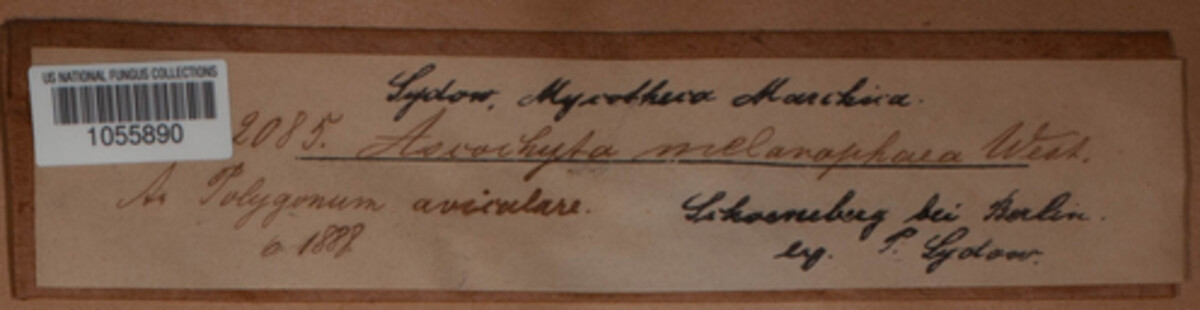 US NATIONAL FUNGUS COLLECTIONS
1055890
Sydow, Mycotheca Marchica.
2085. Ascochyta melanophaea West.
An Polygonum aviculare.
6 1888
Schoeneberg bei Berlin.
leg. P. Sydow.